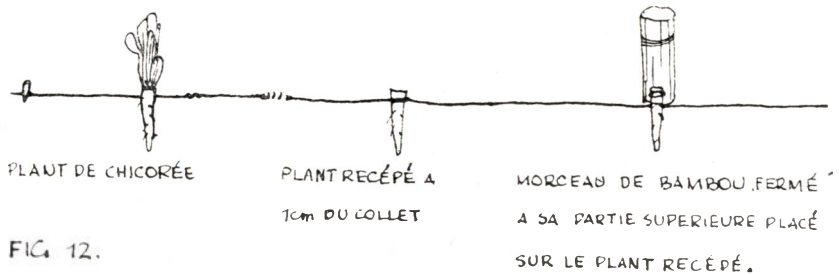 PLANT DE CHICORÉE
PLANT RECÉPÉ A
1cm DU COLLET
MORCEAU DE BAMBOU FERMÉ
A SA PARTIE SUPERIEURE PLACÉ
SUR LE PLANT RECÉPÉ.
FIG. 12.